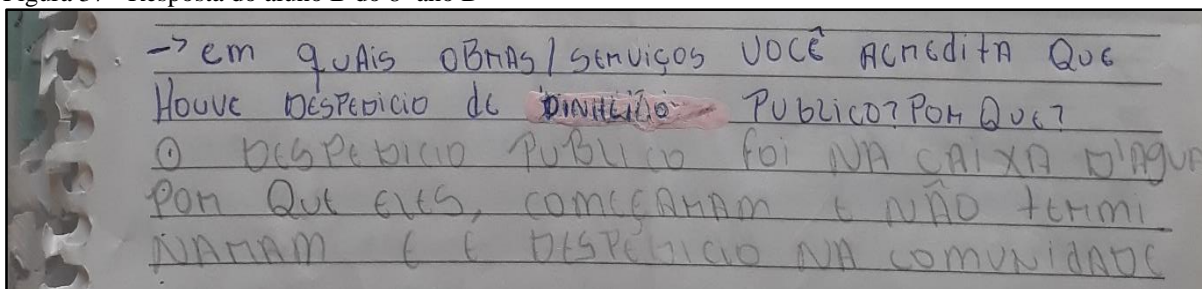 -> em quais OBRAS/SERVIÇOS VOCÊ ACREDITA QUE
HOUVE DESPEDICIO de DINHEIRO PUBLICO? POR QUE?
O DESPEDICIO PUBLICO foi NA CAIXA D'AGUA
POR QUE ELES, COMEÇARAM E NÃO teRMI
NARAM E E DESPEDICIO NA COMUNIDADE